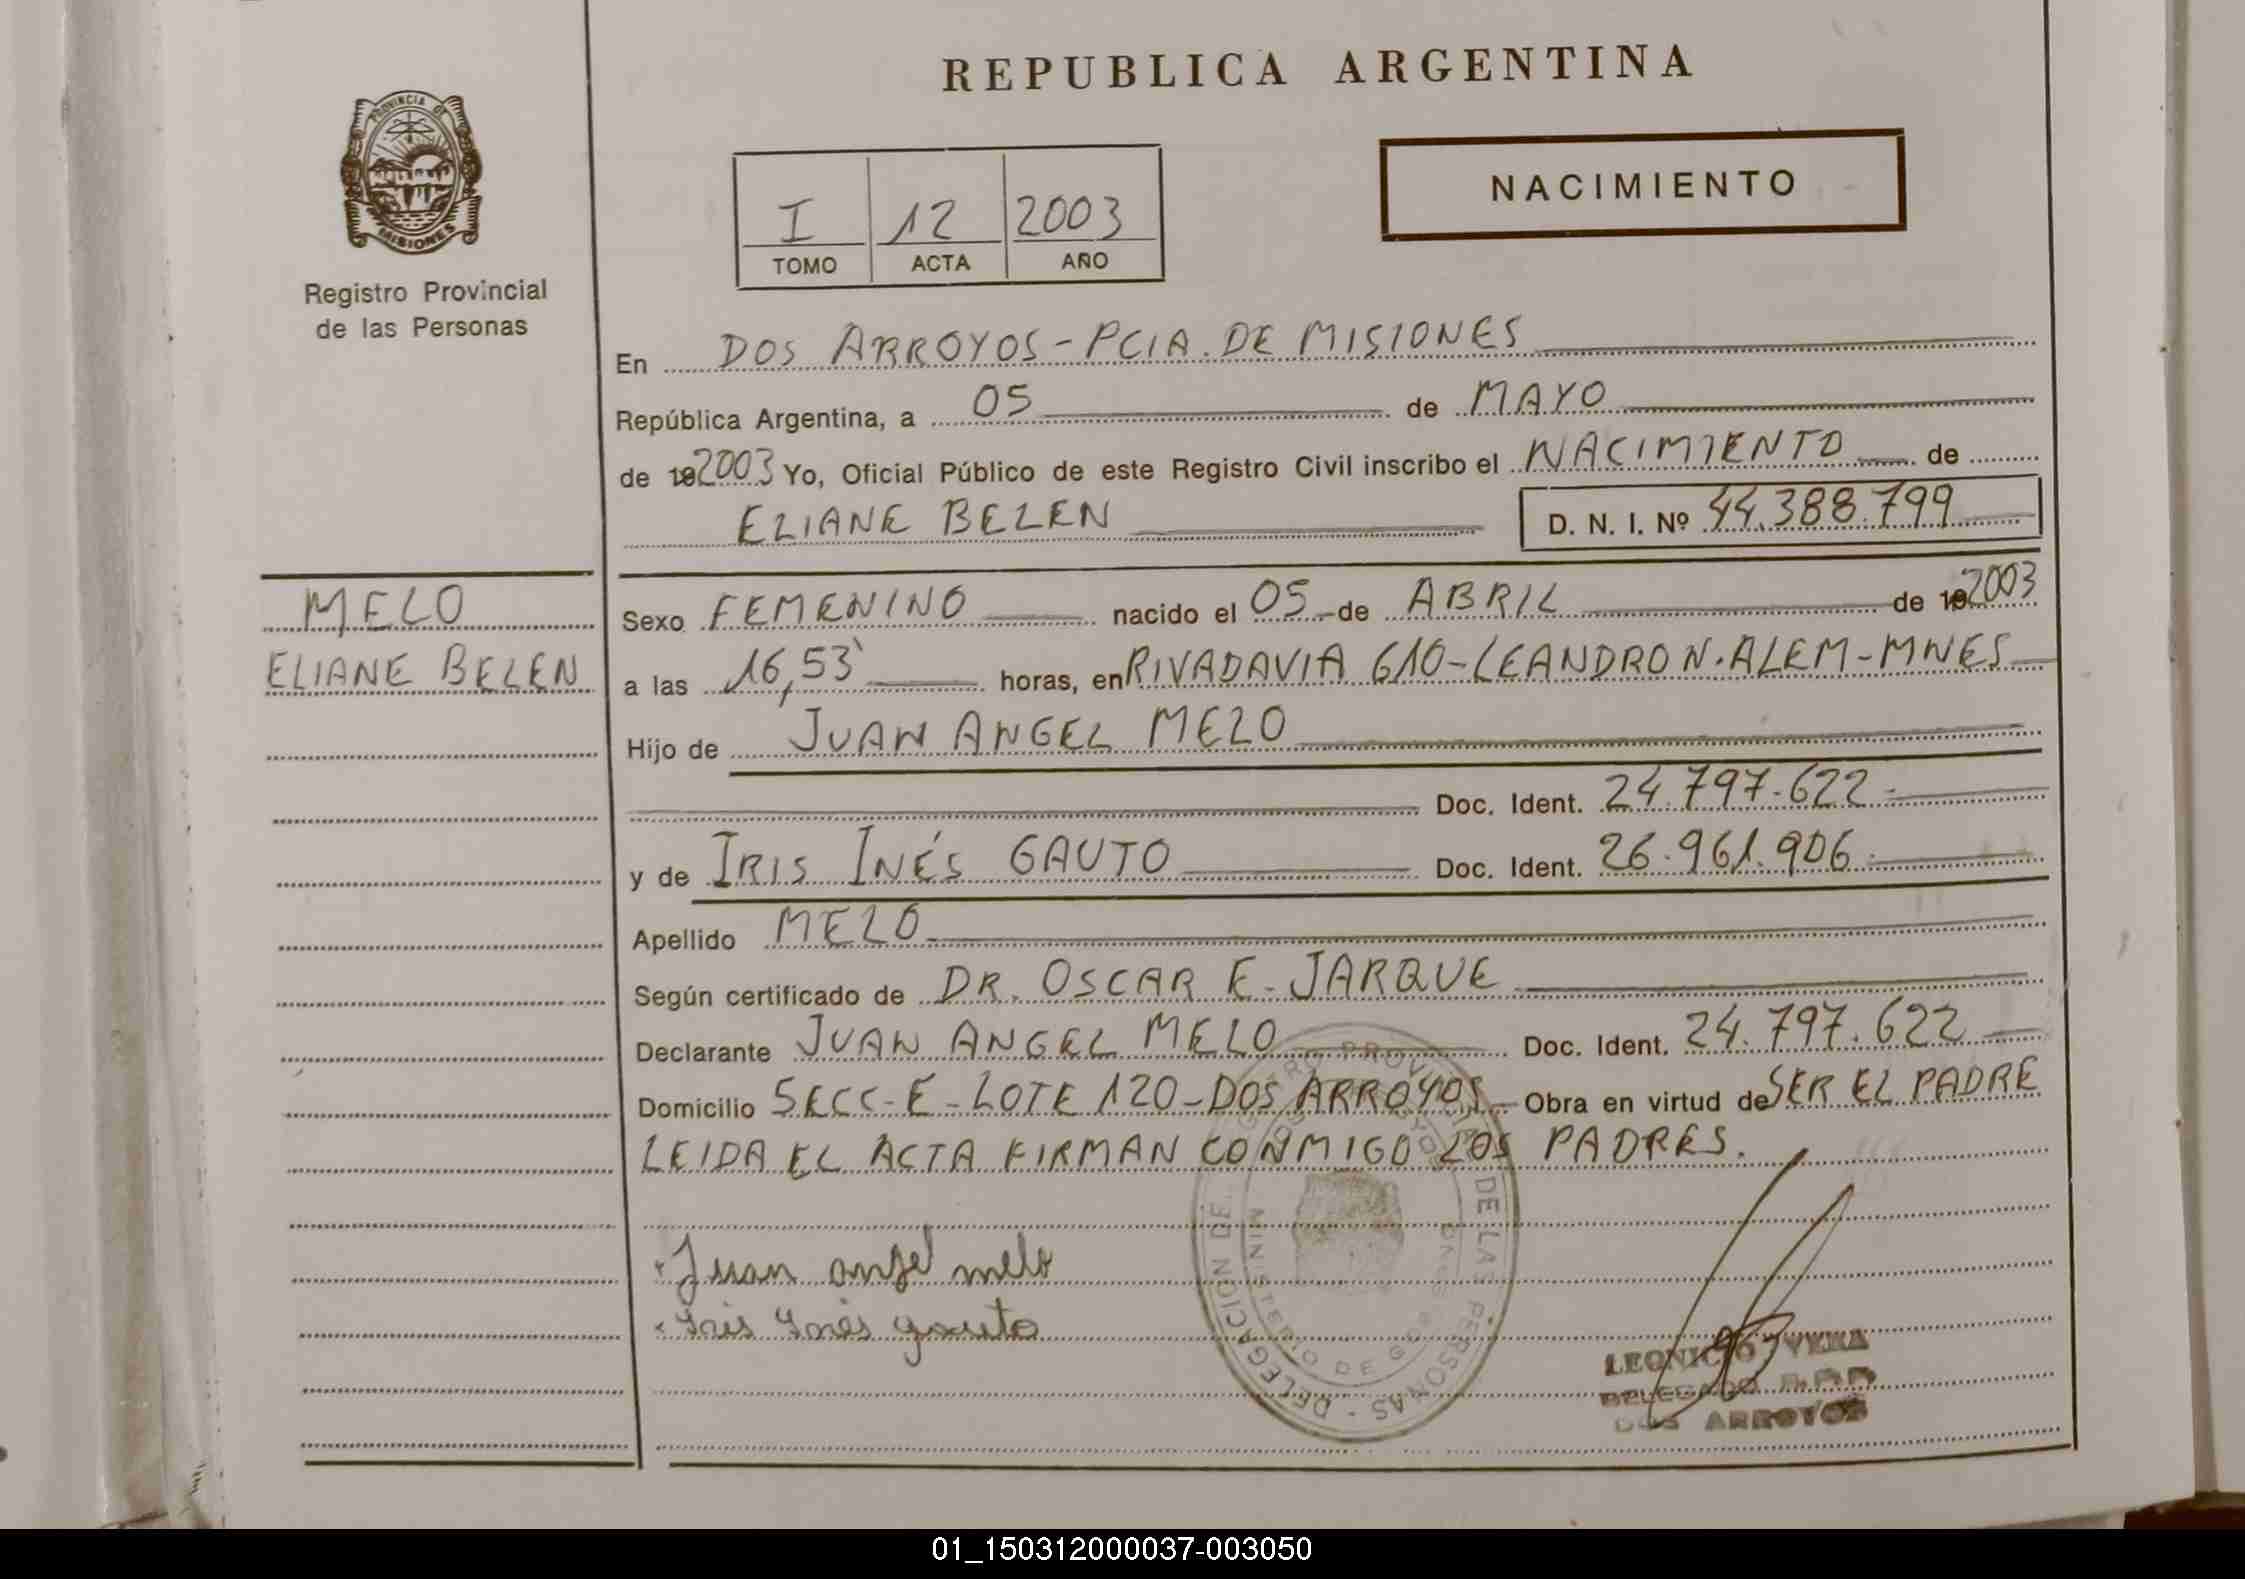 REPUBLICA ARGENTINA
PROVINCIA DE
MISIONES
Registro Provincial
de las Personas
I 12 2003
TOMO ACTA AÑO
NACIMIENTO
En DOS ARROYOS - PCIA. DE MISIONES
República Argentina, a 05 de MAYO
de 192003 Yo, Oficial Público de este Registro Civil inscribo el NACIMIENTO de
ELIANE BELEN D. N. I. Nº 44.388.799
MELO
ELIANE BELEN
Sexo FEMENINO nacido el 05 de ABRIL de 192003
a las 16,53' horas, en RIVADAVIA 610 - LEANDRO N. ALEM - MNES
Hijo de JUAN ANGEL MELO
Doc. Ident. 24.797.622
y de IRIS INÉS GAUTO Doc. Ident. 26.961.906
Apellido MELO
Según certificado de DR. OSCAR E. JARQUE
Declarante JUAN ANGEL MELO Doc. Ident. 24.797.622
Domicilio SECC - E - LOTE 120 - DOS ARROYOS - Obra en virtud de SER EL PADRE
LEIDA EL ACTA FIRMAN CONMIGO LOS PADRES.
Juan angel melo
Iris Inés gauto
DELEGACION DE PERSONAS DE LAS
MINISTERIO DE GOB
VERA
DELEGADO
DOS ARROYOS
01_150312000037-003050